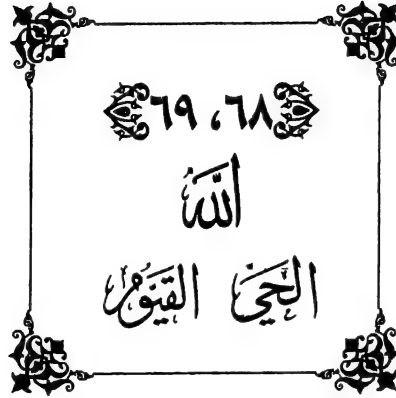 ٦٨، ٦٩
الله
الحَيُّ القَيُّومُ